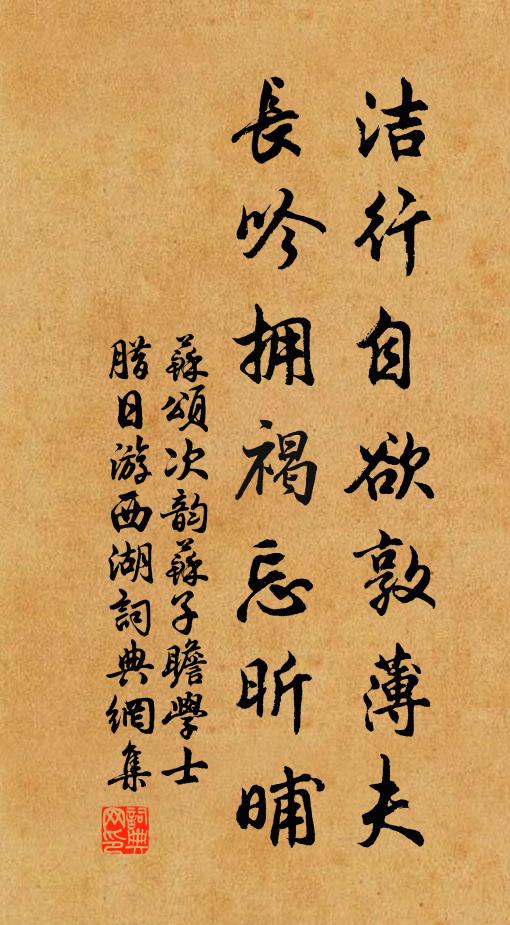 洁行自欲敦薄夫
長吟拥褐忘昕晡
蘇頌次韵蘇子瞻學士
腊日游西湖詞典網集
詞典网印